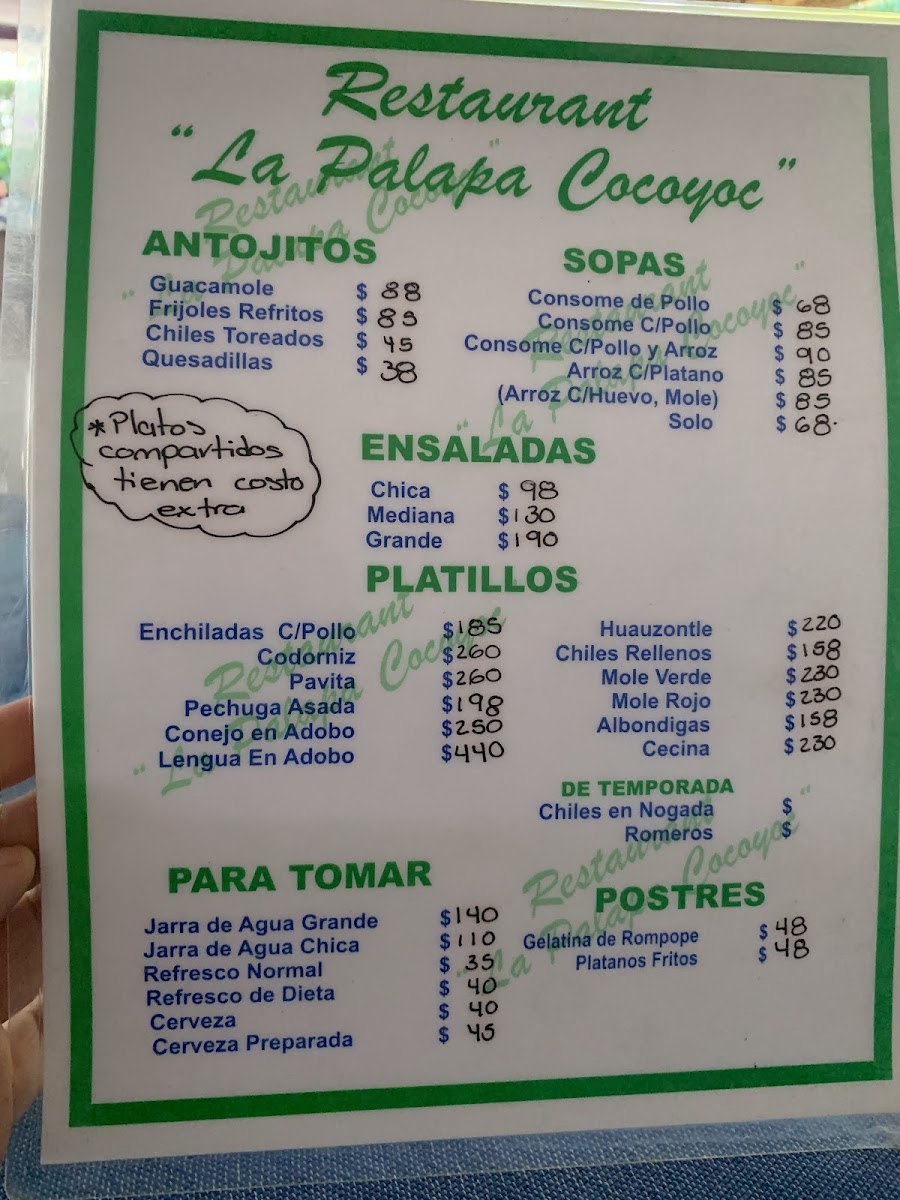 Restaurant
"La Palapa Cocoyoc"
ANTOJITOS
Guacamole $ 88
Frijoles Refritos $ 85
Chiles Toreados $ 45
Quesadillas $ 38
SOPAS
Consome de Pollo $ 68
Consome C/Pollo $ 85
Consome C/Pollo y Arroz $ 90
Arroz C/Platano $ 85
(Arroz C/Huevo, Mole) $ 85
Solo $ 68.
* Platos
compartidos
tienen costo
extra
ENSALADAS
Chica $ 98
Mediana $130
Grande $190
PLATILLOS
Enchiladas C/Pollo $185
Codorniz $260
Pavita $260
Pechuga Asada $198
Conejo en Adobo $250
Lengua En Adobo $440
Huauzontle $220
Chiles Rellenos $158
Mole Verde $230
Mole Rojo $230
Albondigas $158
Cecina $230
DE TEMPORADA
Chiles en Nogada $
Romeros $
PARA TOMAR
Jarra de Agua Grande $140
Jarra de Agua Chica $110
Refresco Normal $ 35
Refresco de Dieta $ 40
Cerveza $ 40
Cerveza Preparada $ 45
POSTRES
Gelatina de Rompope $ 48
Platanos Fritos $ 48
Restaurant
"La Palapa Cocoyoc"
Restaurant
"La Palapa Cocoyoc"
Restaurant
"La Palapa Cocoyoc"
Restaurant
"La Palapa Cocoyoc"